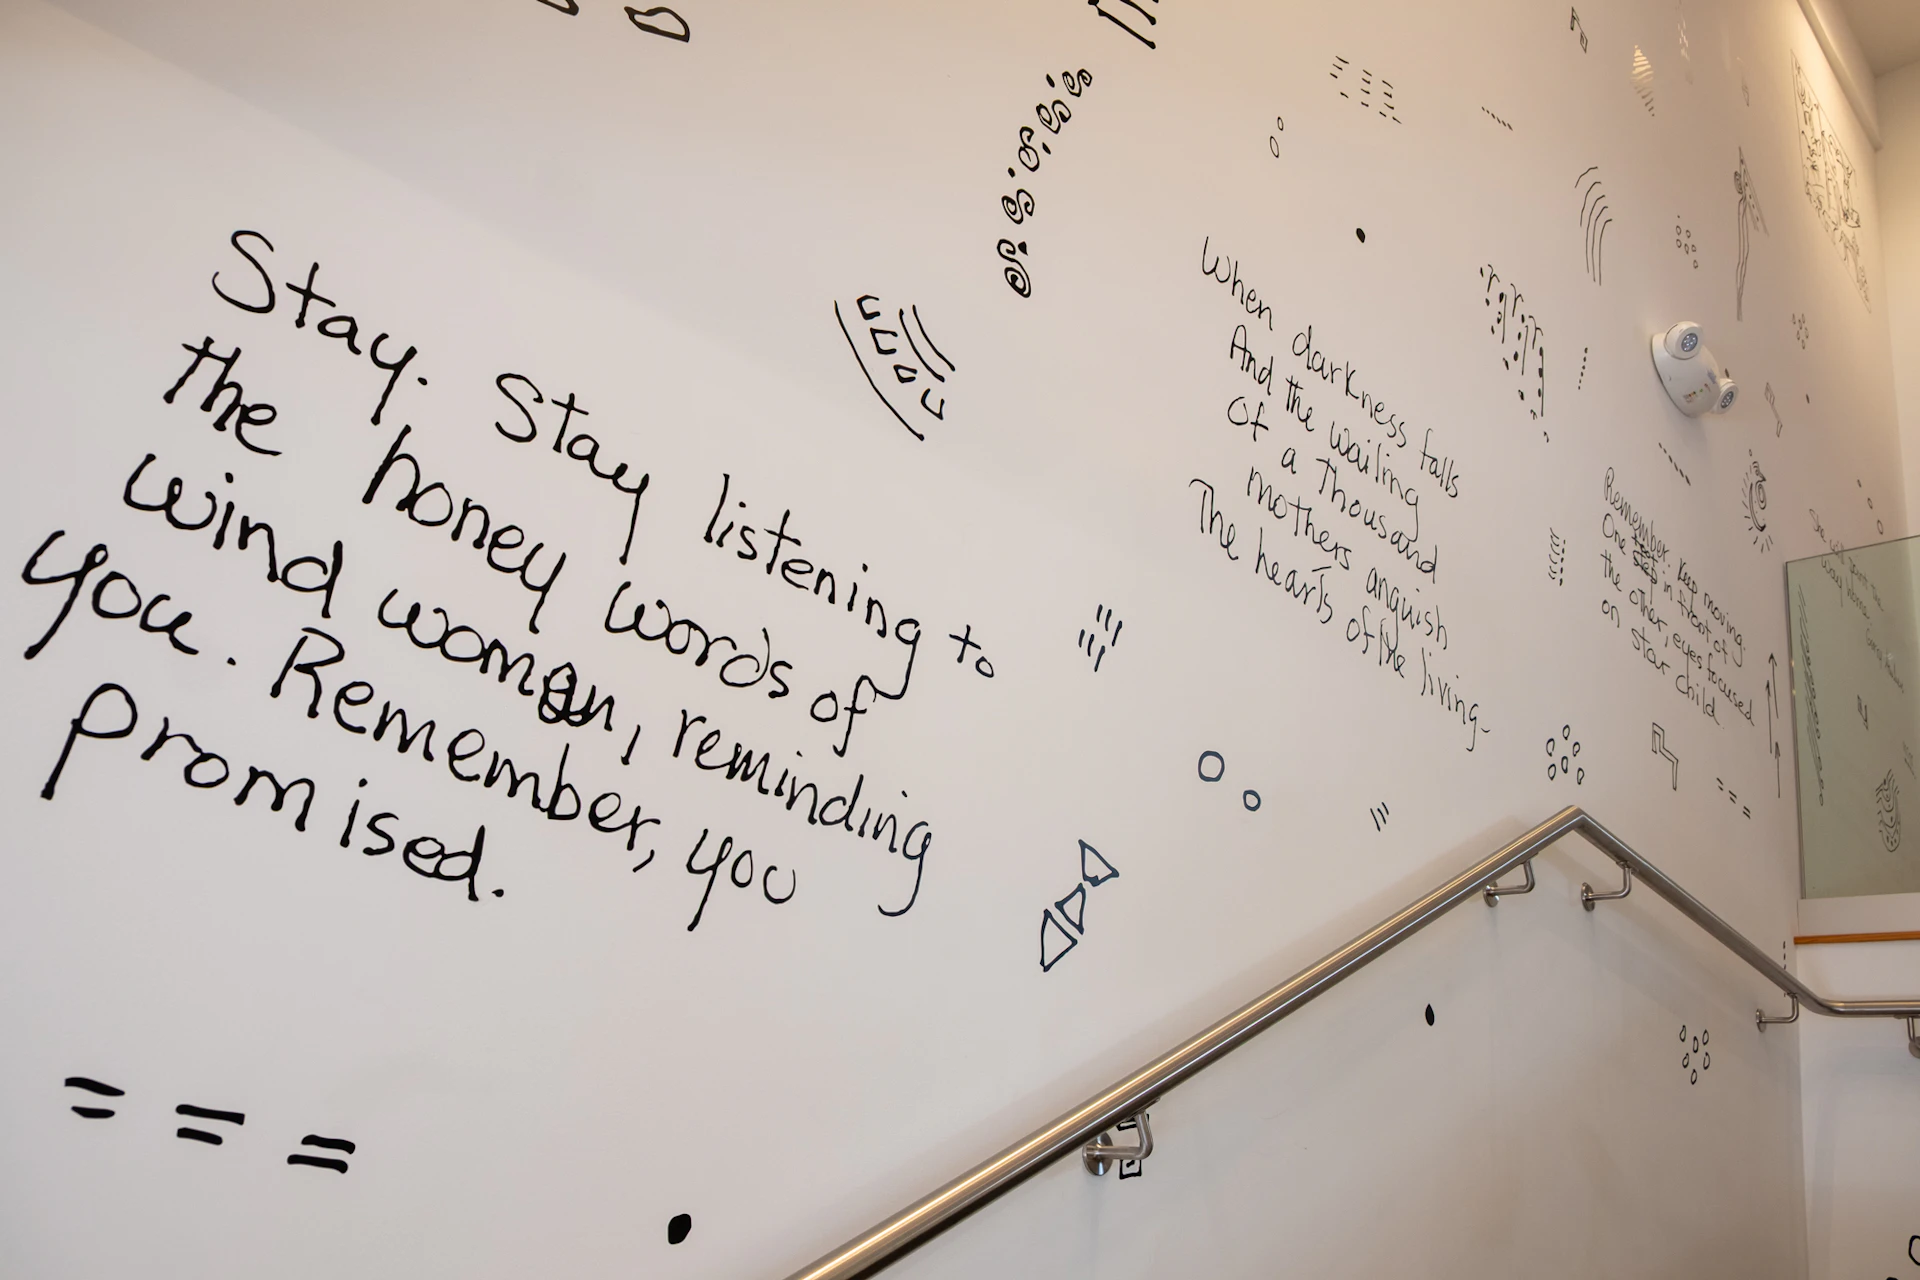 Stay. Stay listening to
the honey words of
wind woman, reminding
you. Remember, you
promised.
When darkness falls
And the wailing
Of a Thousand
mothers anguish
The hearts of the living-
Remember. Keep moving.
One step in front of
the other, eyes focused
on star child
way home.